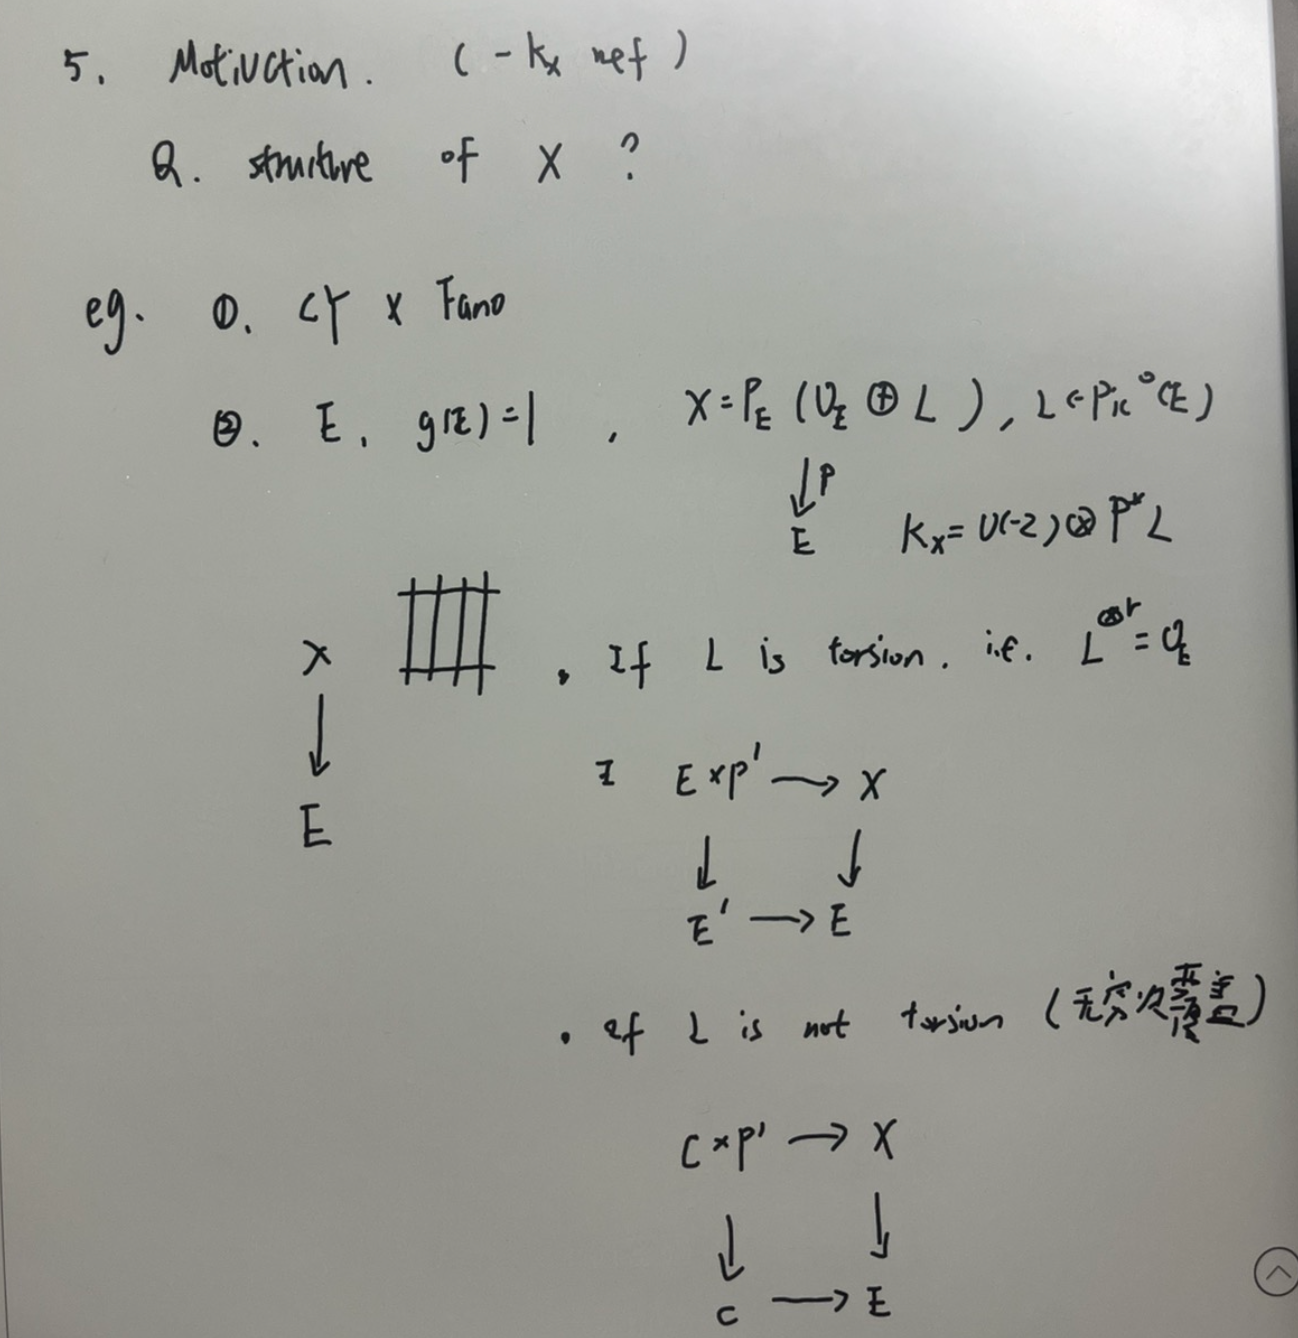 5. Motivation. (-Kx nef)
Q. structure of X ?
eg. ①. CY × Fano
②. E, g(E)=1, X=P_E (O_E ⊕ L), L∈Pic°(E)
↓P
E K_X= O(-2)⊗P*L
X . If L is torsion. i.e. L^{⊗r}=O_E
↓
E
E×P' → X
↓ ↓
E' → E
. If L is not torsion (无穷次覆盖)
C×P' → X
↓ ↓
C → E